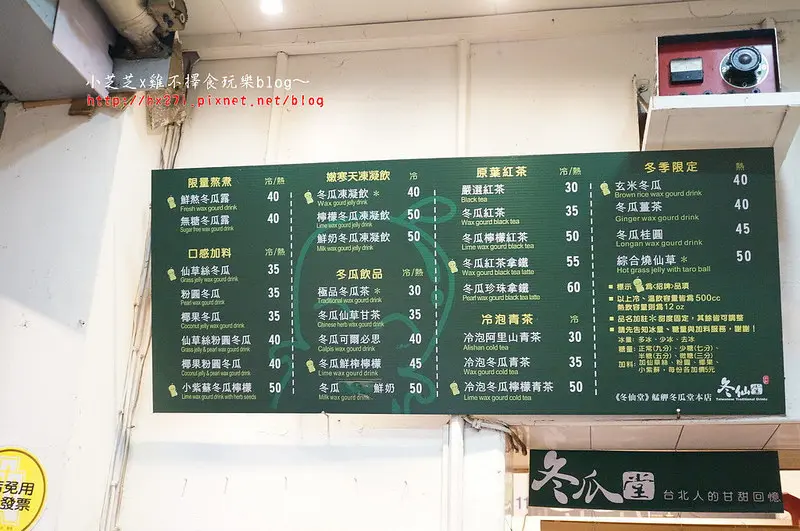 小芝芝x雞不擇食玩樂blog～
http://hx271.pixnet.net/blog
限量熬煮 冷/熱
鮮熬冬瓜露 40
Fresh wax gourd drink
無糖冬瓜露 40
Sugar free wax gourd drink
口感加料 冷/熱
仙草絲冬瓜 35
Grass jelly wax gourd drink
粉圓冬瓜 35
Pearl wax gourd drink
椰果冬瓜 35
Coconut jelly wax gourd drink
仙草絲粉圓冬瓜 40
Grass jelly & pearl wax gourd drink
椰果粉圓冬瓜 40
Coconut jelly & pearl wax gourd drink
小紫蘇冬瓜檸檬 50
Lime wax gourd drink with herb seeds
嫩寒天凍凝飲 冷
冬瓜凍凝飲＊ 40
Wax gourd jelly drink
檸檬冬瓜凍凝飲 50
Lime wax gourd jelly drink
鮮奶冬瓜凍凝飲 50
Milk wax gourd jelly drink
冬瓜飲品 冷/熱
極品冬瓜茶＊ 30
Traditional wax gourd drink
冬瓜仙草甘茶 35
Chinese herb wax gourd drink
冬瓜可爾必思 40
Calpis wax gourd drink
冬瓜鮮榨檸檬 45
Lime wax gourd drink
冬瓜 鮮奶 50
Milk wax gourd drink
原葉紅茶 冷/熱
嚴選紅茶 30
Black tea
冬瓜紅茶 35
Wax gourd black tea
冬瓜檸檬紅茶 50
Lime wax gourd black tea
冬瓜紅茶拿鐵 55
Wax gourd black tea latte
冬瓜珍珠拿鐵 60
Pearl wax gourd black tea latte
冷泡青茶 冷
冷泡阿里山青茶 30
Alishan cold tea
冷泡冬瓜青茶 35
Wax gourd cold tea
冷泡冬瓜檸檬青茶 50
Lime wax gourd cold tea
冬季限定 熱
玄米冬瓜 40
Brown rice wax gourd drink
冬瓜薑茶 40
Ginger wax gourd drink
冬瓜桂圓 45
Longan wax gourd drink
綜合燒仙草＊ 50
Hot grass jelly with taro ball
標示 為<招牌>品項
以上冷、溫飲容量皆為500cc
熱飲容量則為12 oz
品名加註＊甜度固定，其餘皆可調整
請先告知冰量、糖量與加料服務，謝謝！
冰量：多冰、少冰、去冰
糖量：正常(九分)、少糖(七分)、
半糖(五分)、微糖(三分)
加料：加仙草絲、粉圓、椰果、
小紫蘇，每份各加價5元
《冬仙堂》艋舺冬瓜堂本店
冬仙堂
Taiwanese Traditional Drinks
冬瓜堂 台北人的甘甜回憶
免用
發票